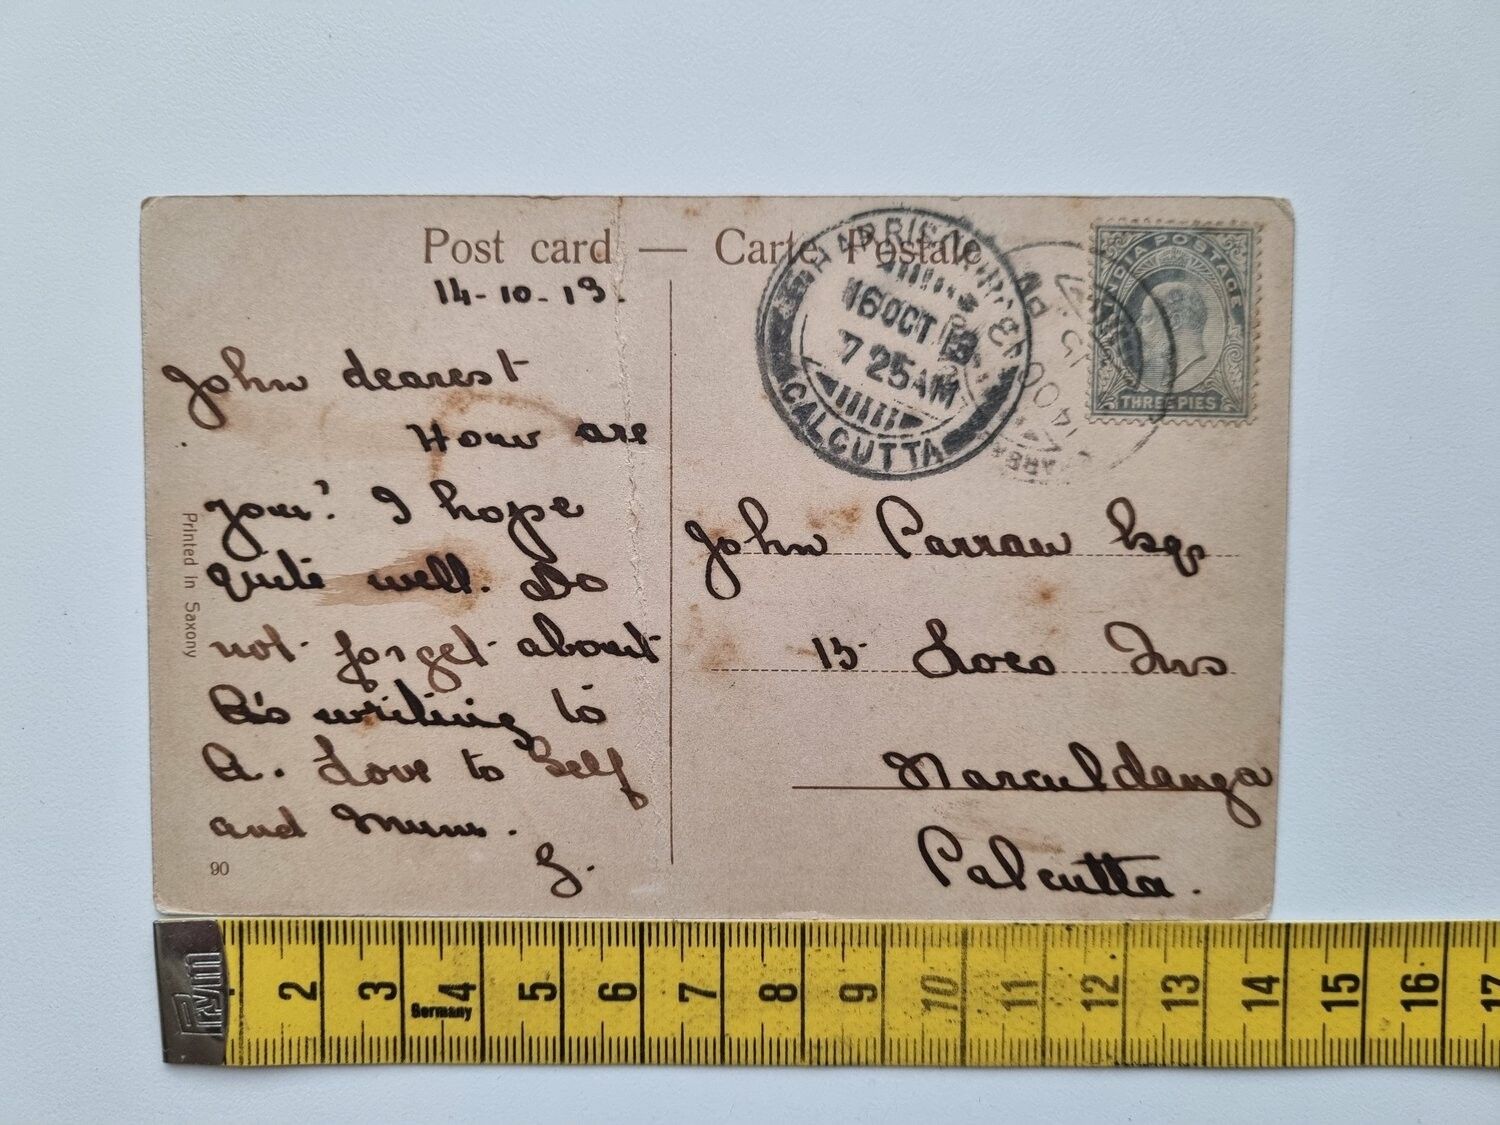 Post card — Carte Postale
14-10-13.
John dearest
How are
you? I hope
quite well. Do
not forget about
A's writing to
A. Love to Self
and Mum.
G.
Printed in Saxony
90
HARRISON
16 OCT 13
7 25 AM
CALCUTTA
INDIA POSTAGE
THREE PIES
John Parrau Esq
15 Loco Ins
Narculdanga
Calcutta.
Prym
Germany
2 3 4 5 6 7 8 9 10 11 12 13 14 15 16 17